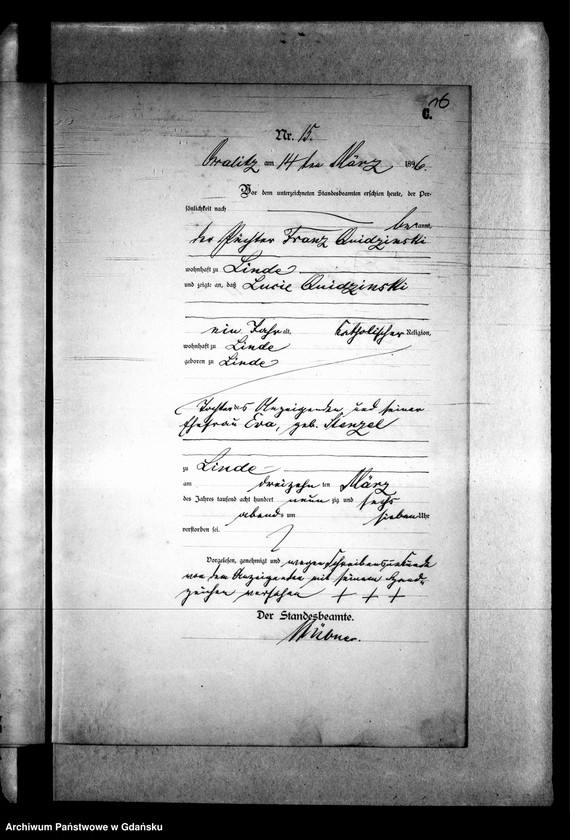 16
C.
Nr. 15.
am 14ten März 1896.
Vor dem unterzeichneten Standesbeamten erschien heute, der Per-
sönlichkeit nach
bekannt,
der Franz Quidzinski
wohnhaft zu Linde
und zeigte an, daß Lucie Quidzinski
ein Jahr alt, katholischer Religion,
wohnhaft zu Linde
geboren zu Linde
Tochter des Anzeigenden und seiner
Ehefrau Eva, geb. Stenzel
zu Linde
am dreizehn ten März
des Jahres tausend acht hundert neun zig und sechs
abends um sieben Uhr
verstorben sei.
Vorgelesen, genehmigt und wegen Schreibensunkunde
von dem Anzeigenden mit seinem Hand-
zeichen versehen + + +
Der Standesbeamte.
Archiwum Państwowe w Gdańsku